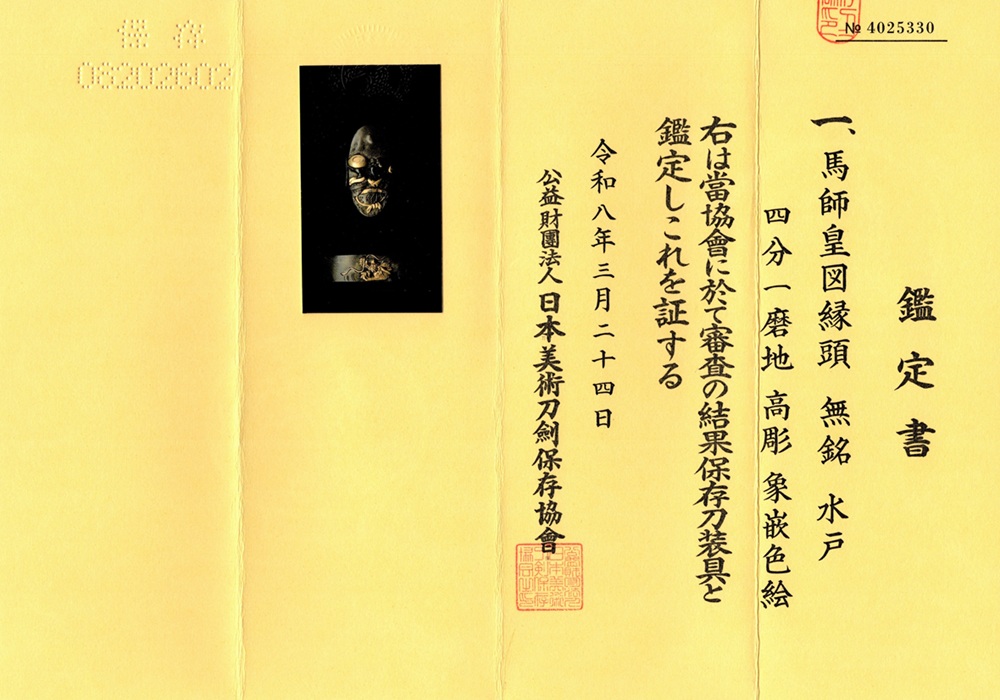 № 4025330
鑑定書
一、馬師皇図縁頭 無銘 水戸
四分一磨地 高彫 象嵌色絵
右は當協會に於て審査の結果保存刀装具と
鑑定しこれを証する
令和八年三月二十四日
公益財團法人 日本美術刀劍保存協會
保存
08202602